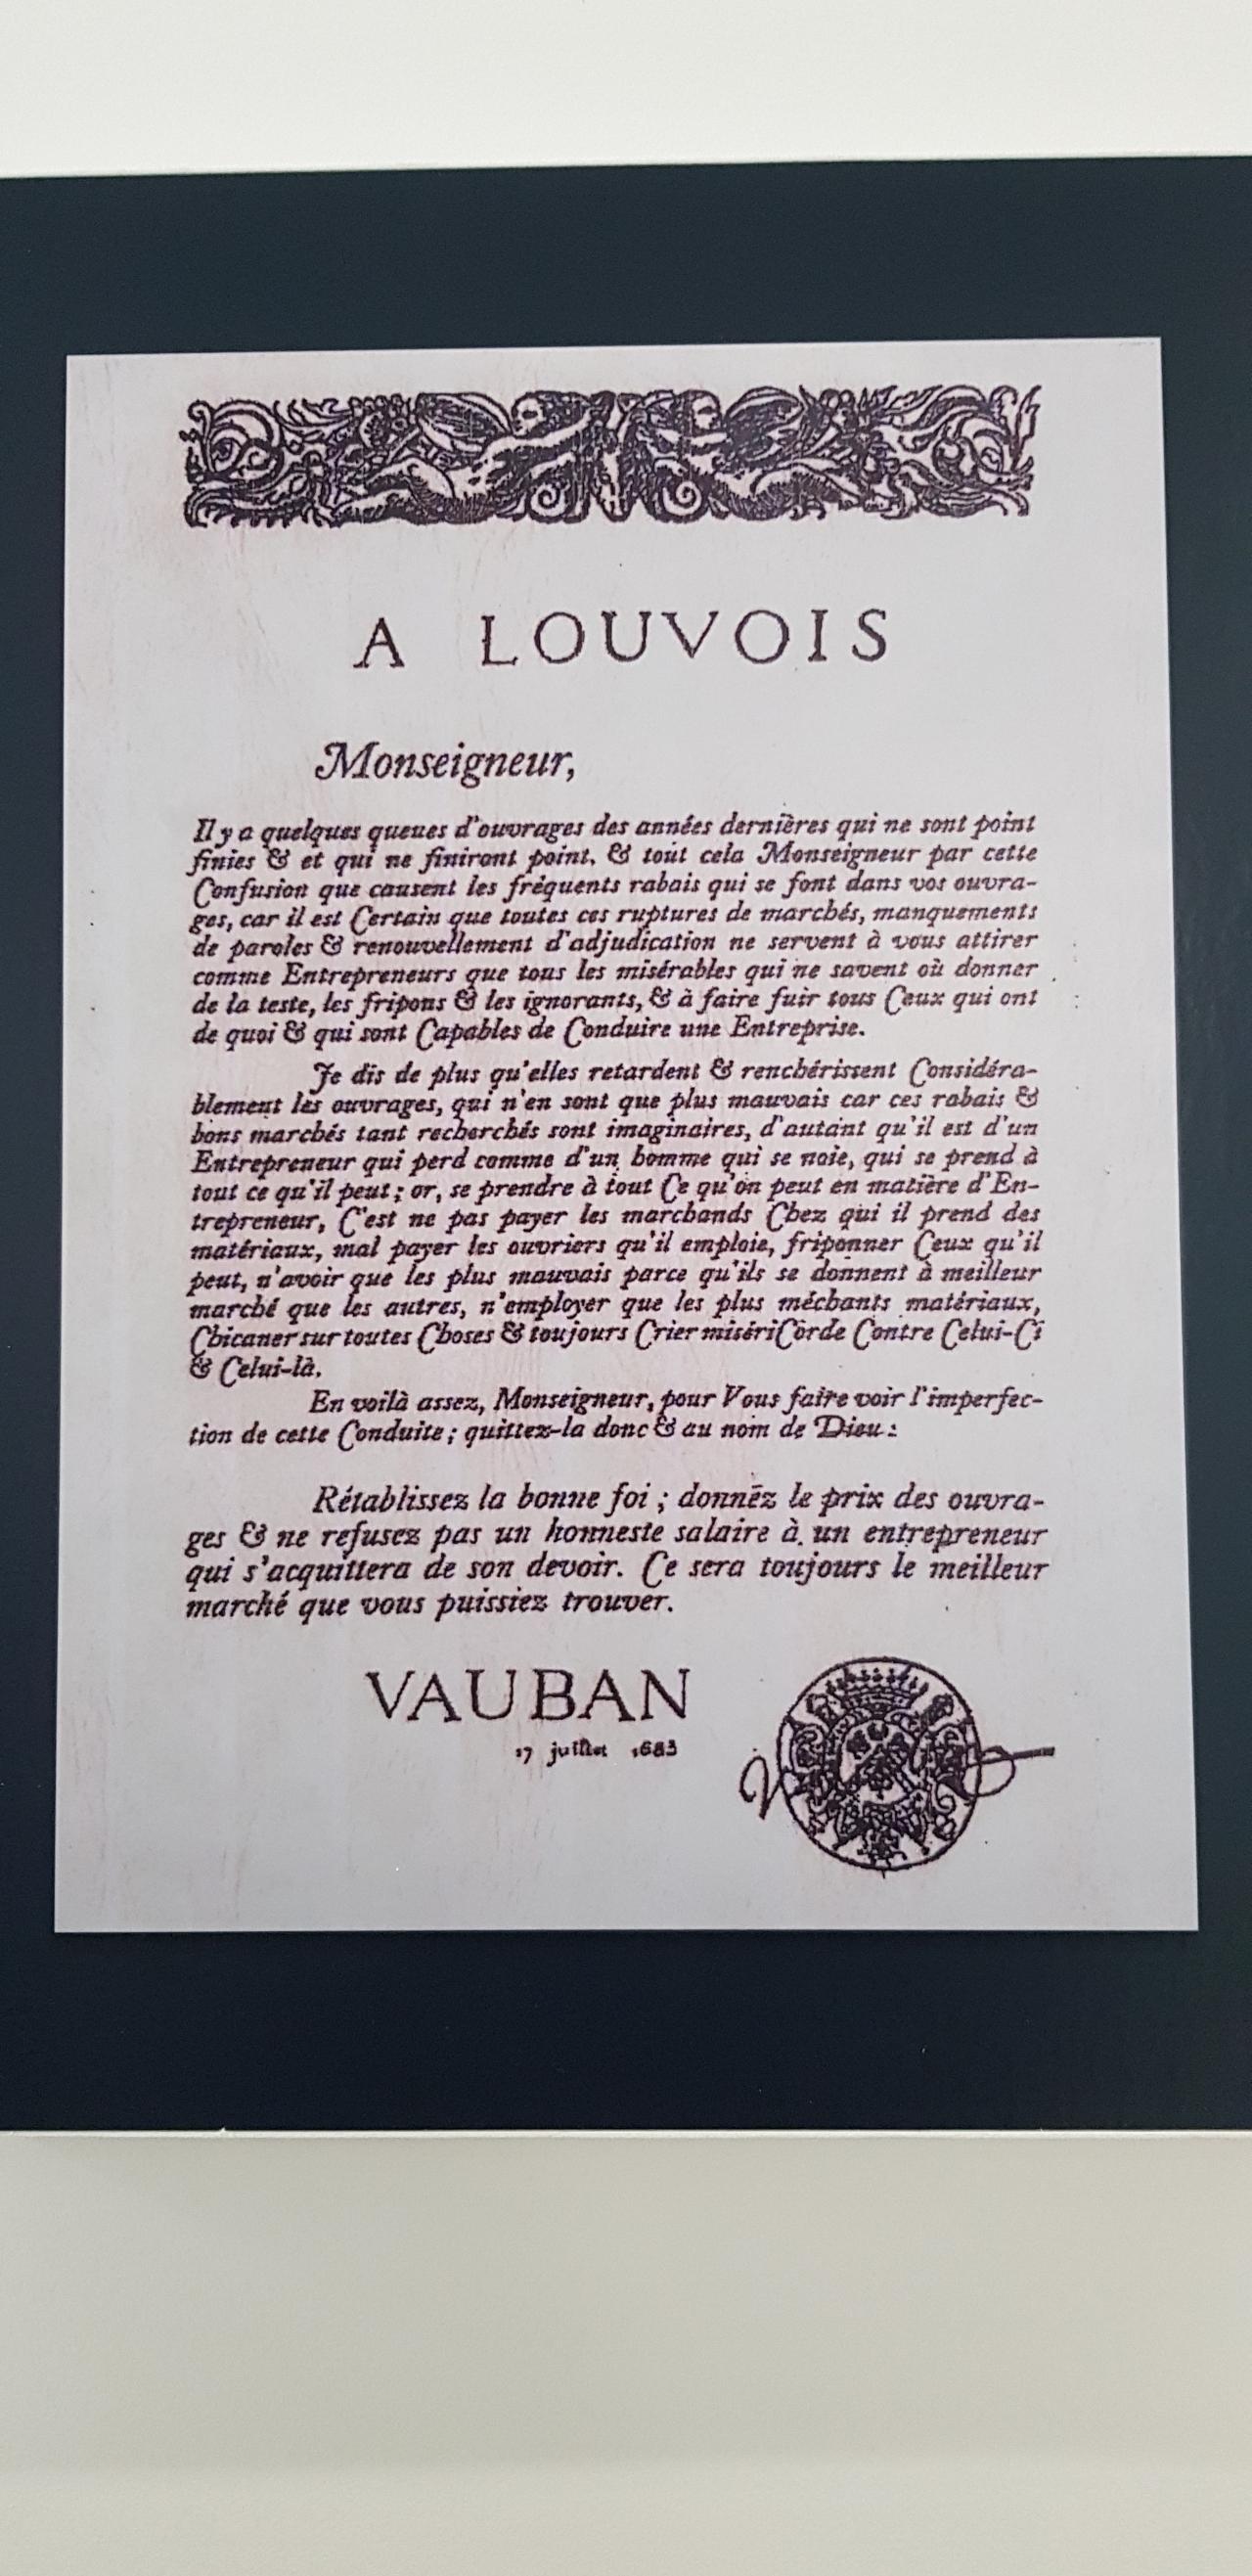 A LOUVOIS
Monseigneur,
Il y a quelques queues d'ouvrages des années dernières qui ne sont point
finies & et qui ne finiront point. & tout cela Monseigneur par cette
Confusion que causent les fréquents rabais qui se font dans vos ouvra-
ges, car il est Certain que toutes ces ruptures de marchés, manquements
de paroles & renouvellement d'adjudication ne servent à vous attirer
comme Entrepreneurs que tous les misérables qui ne savent où donner
de la teste, les fripons & les ignorants, & à faire fuir tous Ceux qui ont
de quoi & qui sont Capables de Conduire une Entreprise.
Je dis de plus qu'elles retardent & renchérissent Considéra-
blement les ouvrages, qui n'en sont que plus mauvais car ces rabais &
bons marchés tant recherchés sont imaginaires, d'autant qu'il est d'un
Entrepreneur qui perd comme d'un homme qui se noie, qui se prend à
tout ce qu'il peut ; or, se prendre à tout Ce qu'on peut en matière d'En-
trepreneur, C'est ne pas payer les marchands Chez qui il prend des
matériaux, mal payer les ouvriers qu'il emploie, friponner Ceux qu'il
peut, n'avoir que les plus mauvais parce qu'ils se donnent à meilleur
marché que les autres, n'employer que les plus méchants matériaux,
Chicaner sur toutes Choses & toujours Crier misériCorde Contre Celui-Ci
& Celui-là.
En voilà assez, Monseigneur, pour Vous faire voir l'imperfec-
tion de cette Conduite ; quittez-la donc & au nom de Dieu :
Rétablissez la bonne foi ; donnez le prix des ouvra-
ges & ne refusez pas un honneste salaire à un entrepreneur
qui s'acquittera de son devoir. Ce sera toujours le meilleur
marché que vous puissiez trouver.
VAUBAN
17 juillet 1683